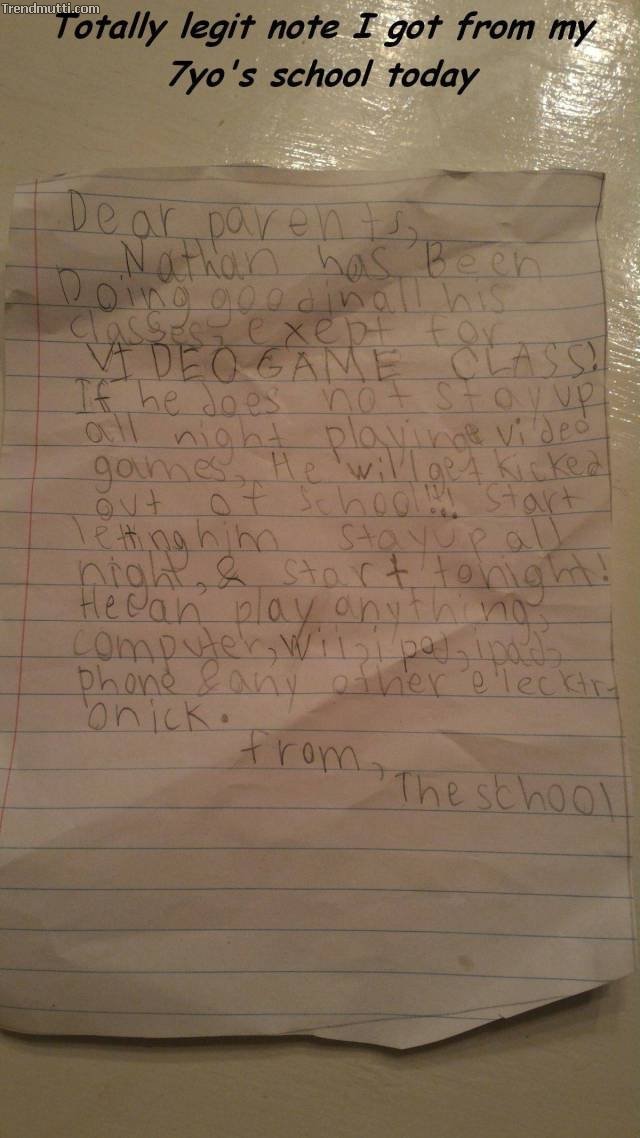 Trendmutti.com
Totally legit note I got from my
7yo's school today
Dear parents,
Nathan has Been
Doing good in all his
classes, exept for
VIDEO GAME CLASS!
If he does not stay up
all night playing video
games, He will get kicked
out of school!!! Start
letting him stay up all
night, & start tonight!
He can play anything,
computer, Wii, ipod, ipad,
phone & any other elecktr-
onick.
from,
The school